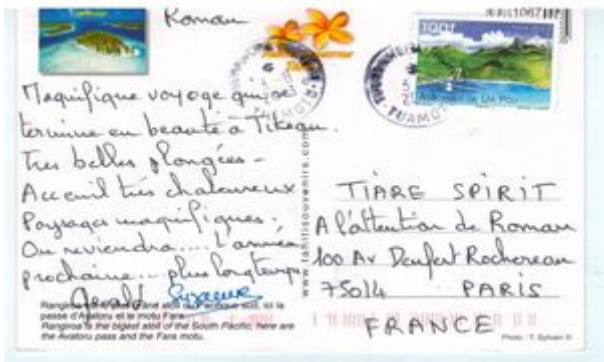 Romau
Magnifique voyage qui se
termine en beauté à Tikeau.
Tres belles plongées -
Acceuil très chaleureux
Paysages magnifiques.
On reviendra.... l'année
prochaine... plus longtemps
Suzanne
Rangiroa est le plus grand atoll du Pacifique sud, ici la
passe d'Avatoru et le motu Fara.
Rangiroa is the bigest atoll of the South Pacific, here are
the Avatoru pass and the Fara motu.
www.tahitisouvenirs.com
100F
TUAMOTU
TIARE SPIRIT
A l'attention de Romau
100 Av Denfert Rochereau
75014 PARIS
FRANCE
Photo : T. Sylvain ©